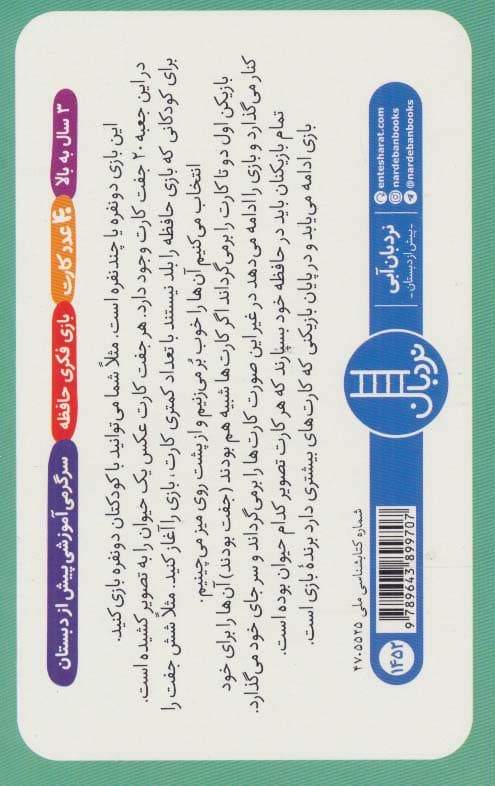 سرگرمی آموزشی پیش از دبستان
بازی فکری حافظه
۴۰ عدد کارت
۳ سال به بالا
این بازی دونفره یا چندنفره است. مثلاً شما می‌توانید با کودکتان دونفره بازی کنید.
در این جعبه ۲۰ جفت کارت وجود دارد. هر جفت کارت عکس یک حیوان را به تصویر کشیده است.
برای کودکانی که بازی حافظه را بلد نیستند با تعداد کمتری کارت، بازی را آغاز کنید. مثلاً شش جفت را
انتخاب می‌کنیم آن‌ها را خوب بُر می‌زنیم و از پشت روی میز می‌چینیم.
بازیکن اول دو تا کارت را برمی‌گرداند اگر کارت‌ها شبیه هم بودند (جفت بودند) آن‌ها را برای خود
کنار می‌گذارد و بازی را ادامه می‌دهد در غیر این صورت کارت‌ها را برمی‌گرداند و سر جای خود می‌گذارد.
تمام بازیکنان باید در حافظه خود بسپارند که هر کارت تصویر کدام حیوان بوده است.
بازی ادامه می‌یابد و در پایان بازیکنی که کارت‌های بیشتری دارد برندهٔ بازی است.
شماره کتابشناسی ملی ۴۷۰۵۵۲۵
۱۴۵۲
9 789643 899707
نردبان
نردبان آبی
- پیش از دبستان -
entesharat.com
nardebanbooks
@nardebanbooks